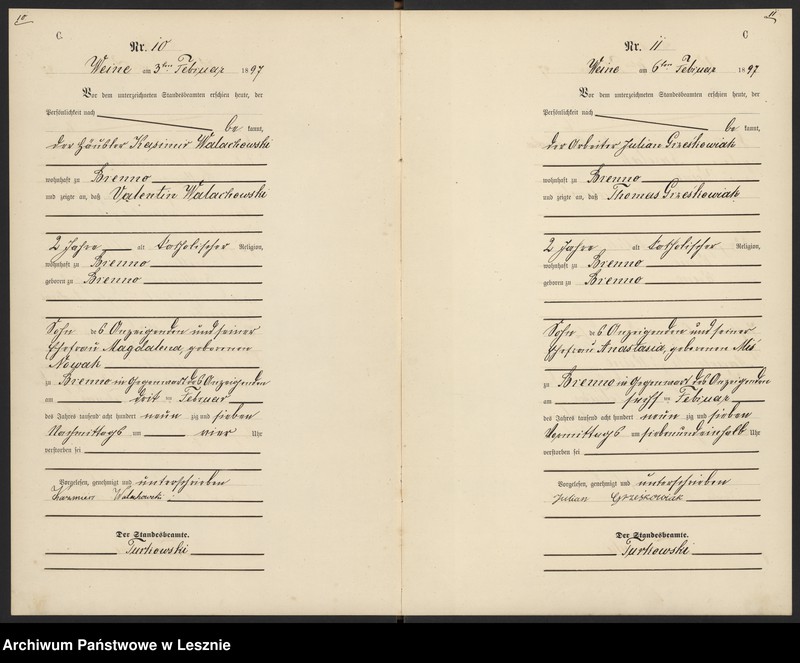 10
C.
Nr. 10
Weine am 3ten Februar 1897
Vor dem unterzeichneten Standesbeamten erschien heute, der
Persönlichkeit nach
be kannt,
der Häusler Kasimir Walachowski
wohnhaft zu Brenno
und zeigte an, daß Valentin Walachowski
2 Jahre alt katholischer Religion,
wohnhaft zu Brenno
geboren zu Brenno
Sohn des Anzeigenden und seiner
Ehefrau Magdalena, geborenen
Nowak
zu Brenno in Gegenwart des Anzeigenden
am drit ten Februar
des Jahres tausend acht hundert neun zig und sieben
Nachmittags um vier Uhr
verstorben sei
Vorgelesen, genehmigt und unterschrieben
Kazmierz Walachowski
Der Standesbeamte.
Turkowski
11
C
Nr. 11
Weine am 6ten Februar 1897
Vor dem unterzeichneten Standesbeamten erschien heute, der
Persönlichkeit nach
be kannt,
der Arbeiter Julian Grzeskowiak
wohnhaft zu Brenno
und zeigte an, daß Thomas Grzeskowiak
2 Jahre alt katholischer Religion,
wohnhaft zu Brenno
geboren zu Brenno
Sohn des Anzeigenden und seiner
Ehefrau Anastasia, geborenen Mis
zu Brenno in Gegenwart des Anzeigenden
am sechs ten Februar
des Jahres tausend acht hundert neun zig und sieben
Vormittags um siebenundeinhalb Uhr
verstorben sei
Vorgelesen, genehmigt und unterschrieben
Julian Grzeskowiak
Der Standesbeamte.
Turkowski
Archiwum Państwowe w Lesznie